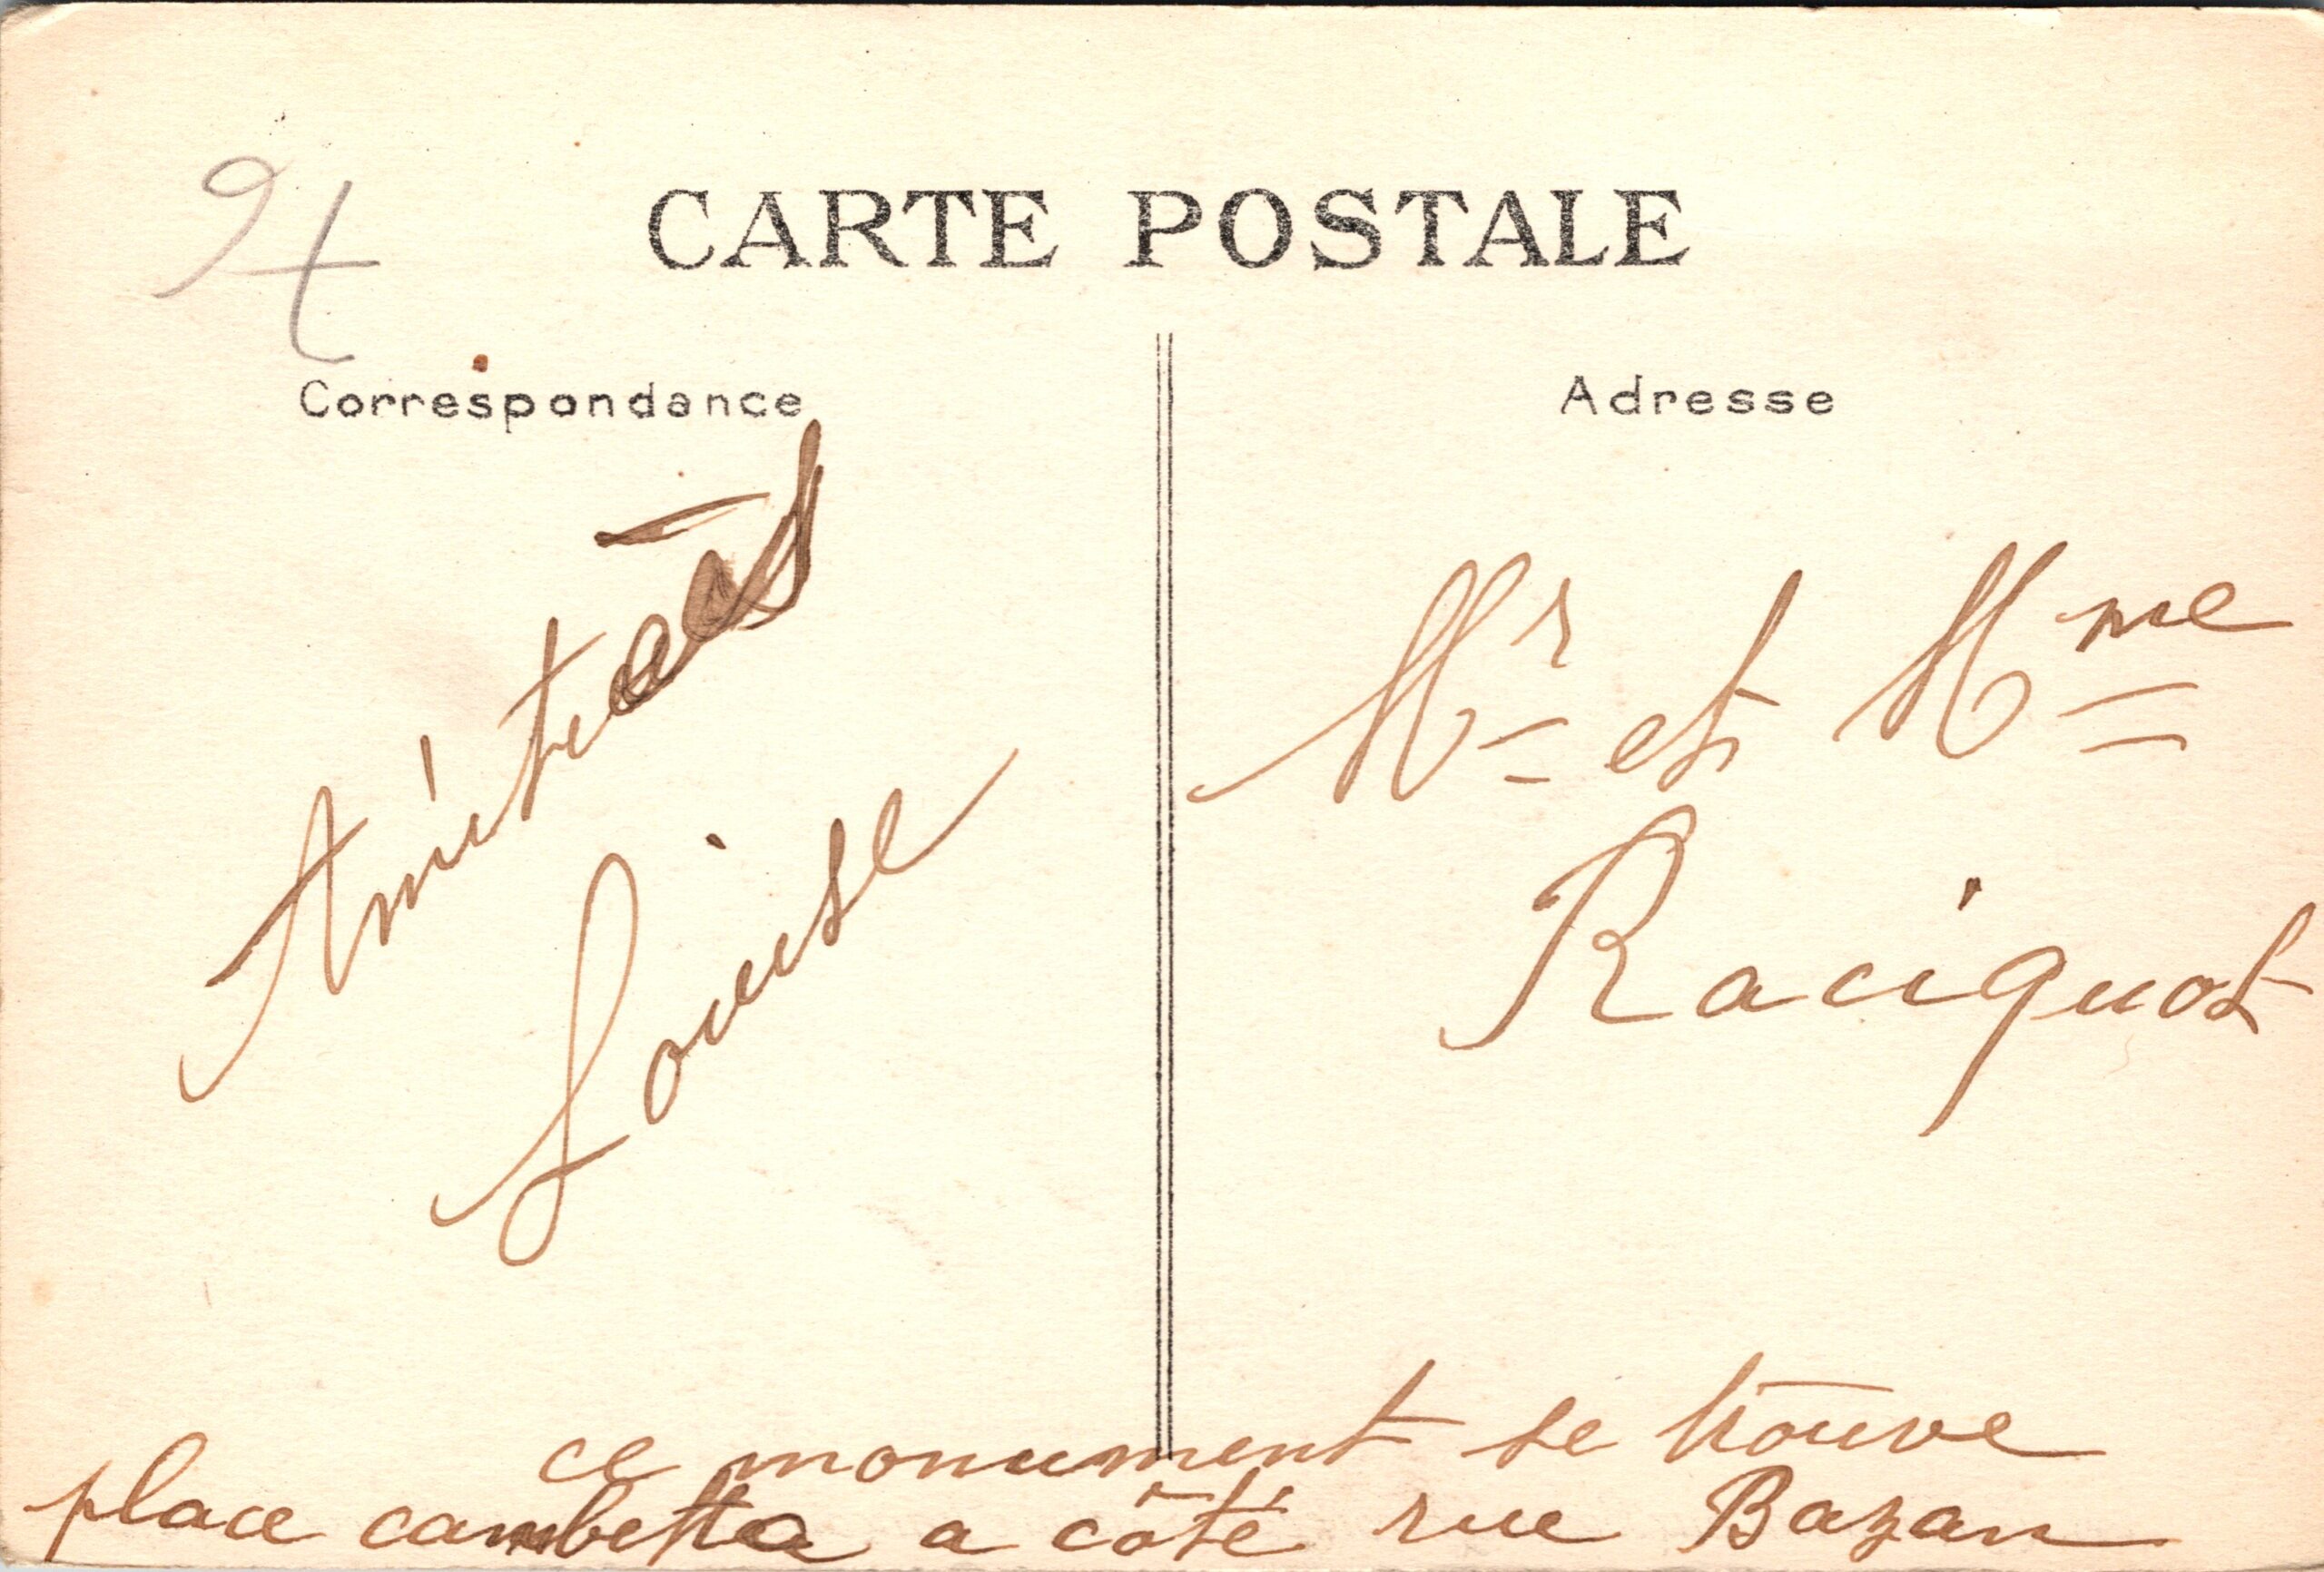 CARTE POSTALE
Correspondance
Adresse
Louise
Mr et Mme
Raciquot
ce monument se trouve
place cambetta a côté rue Bazan